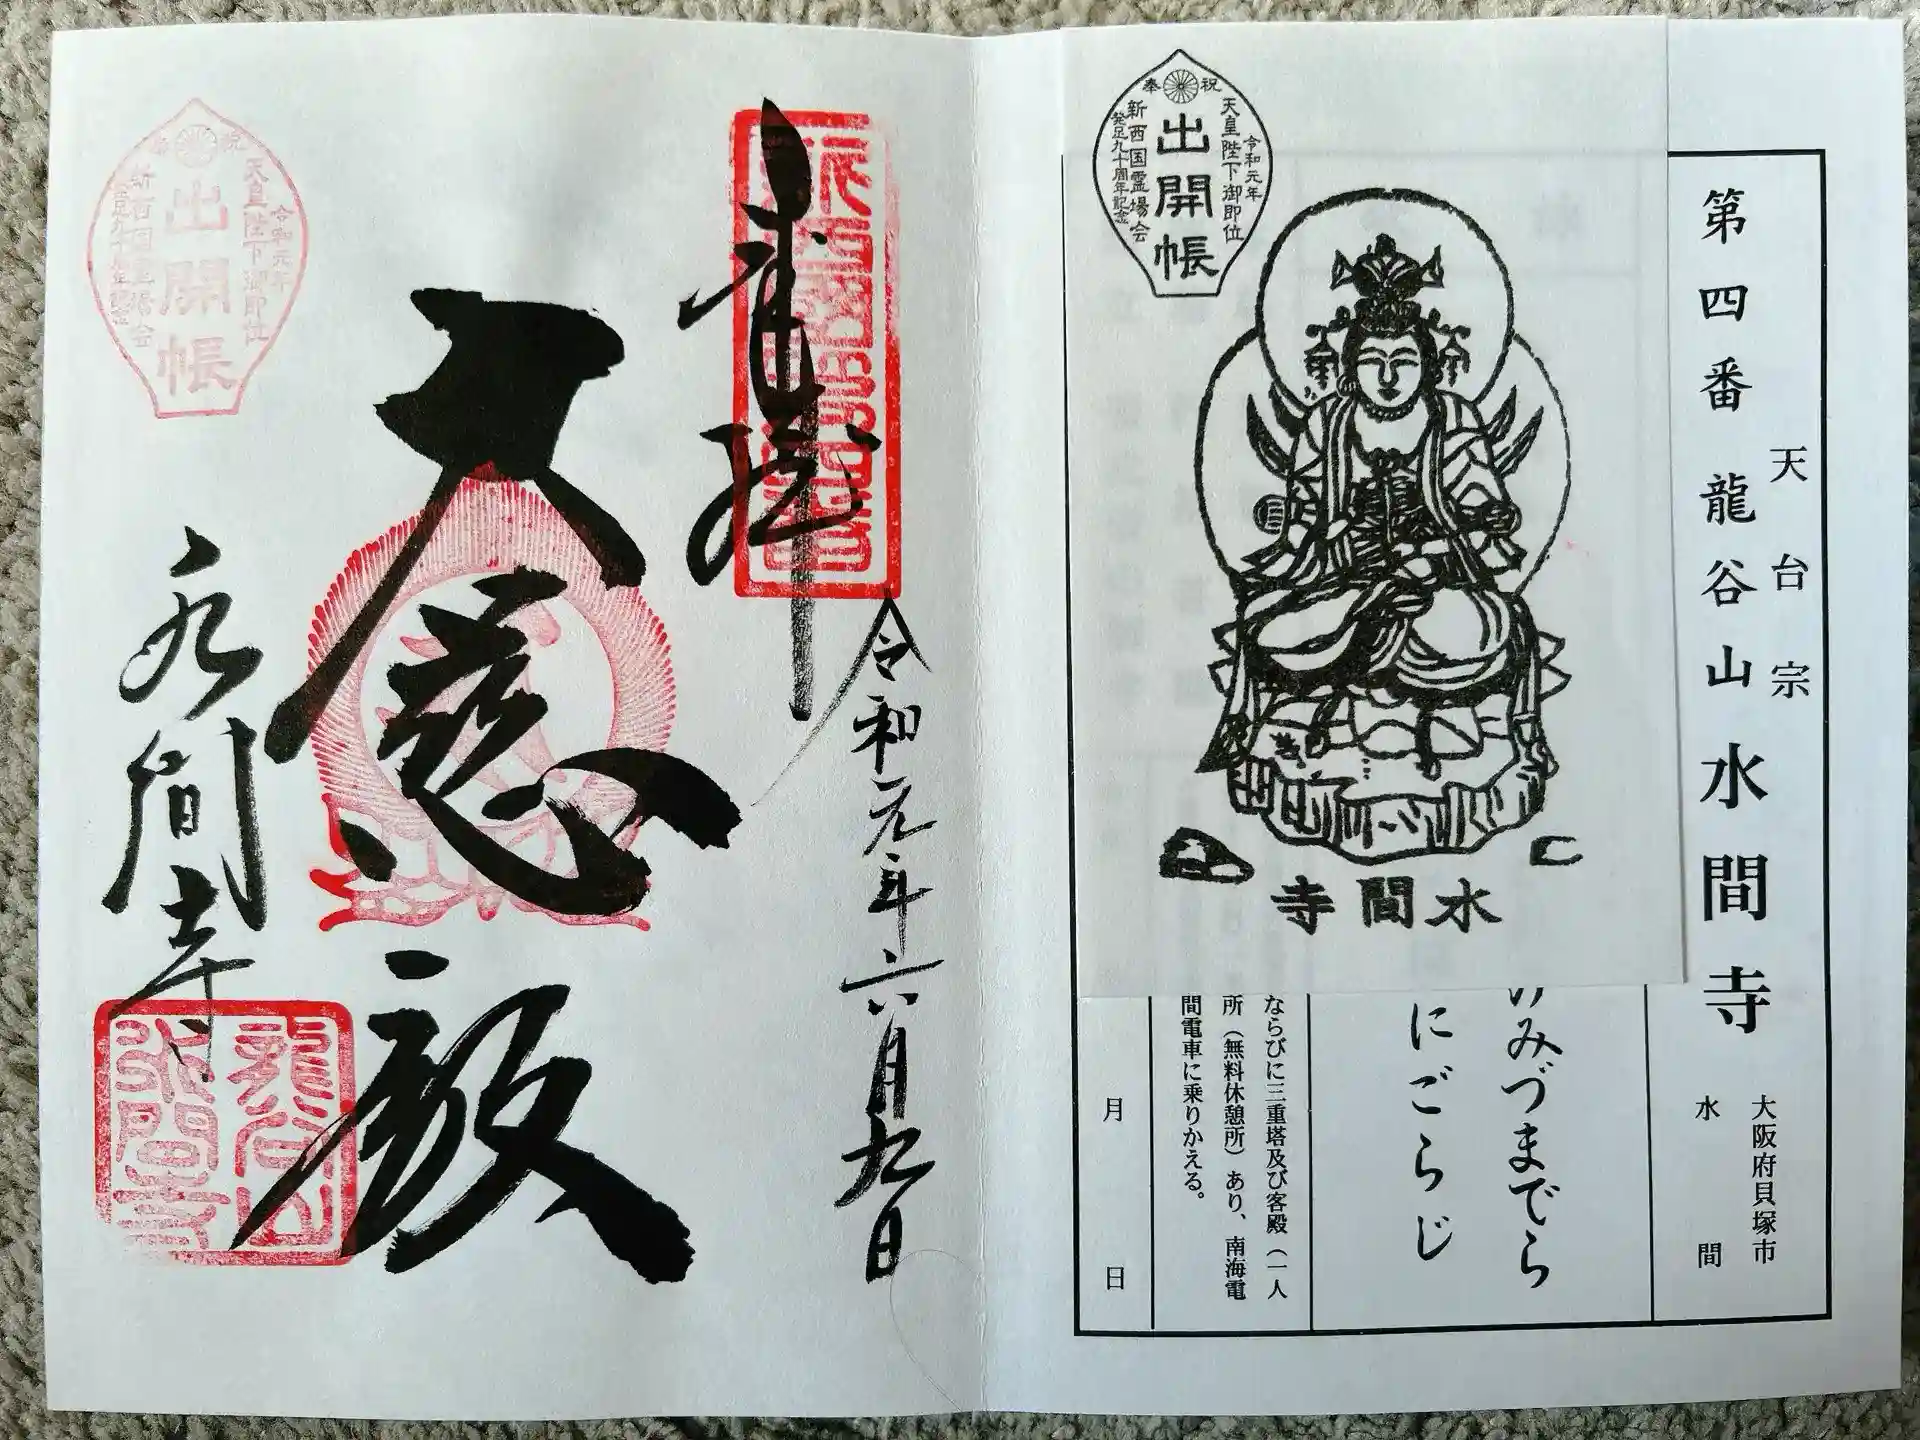 第四番龍谷山水間寺
天台宗
大阪府貝塚市
水間
みづまでら
にごらじ
ならびに三重塔及び客殿（一人
所（無料休憩所）あり、南海電
間電車に乗りかえる。
月　日
奉祝
令和元年
天皇陛下御即位
出開帳
新西国霊場会
発足九十周年記念
水間寺
奉拝
令和元年六月九日
大慈殿
水間寺
新西国第四番
龍谷山
水間寺
奉祝
令和元年
天皇陛下御即位
出開帳
新西国霊場会
発足九十周年記念